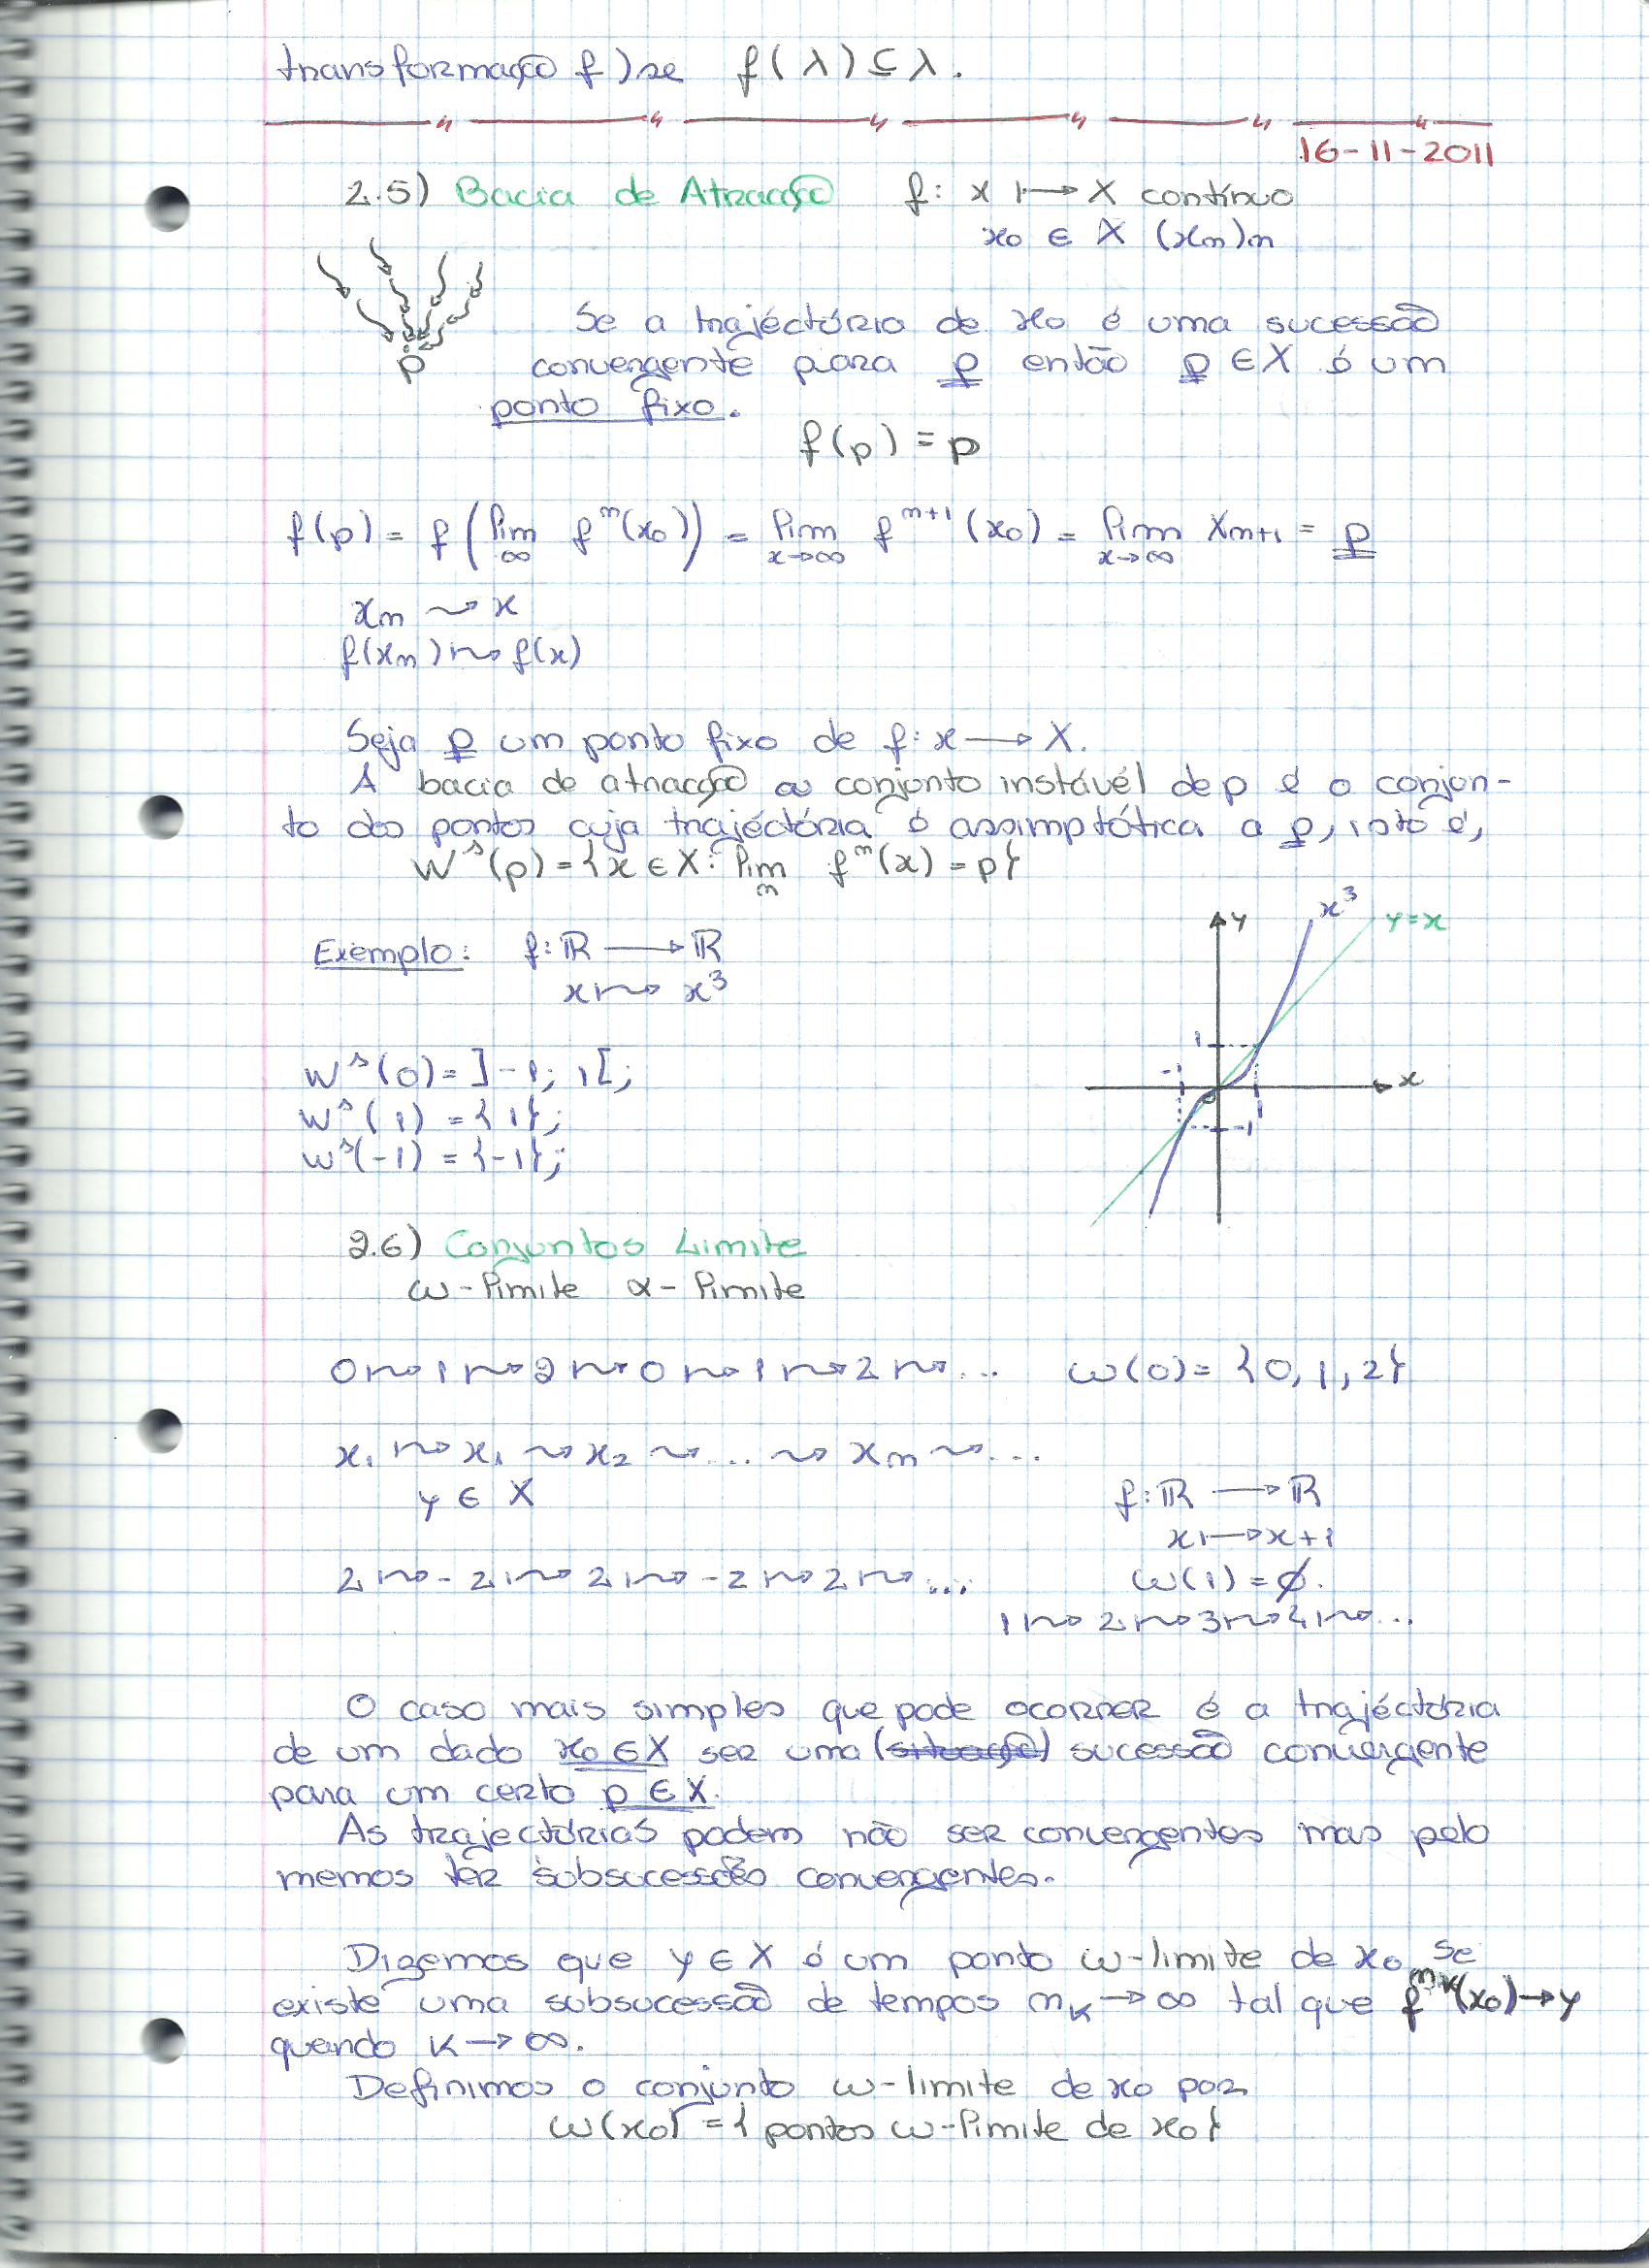 transformação f) se f(λ) ⊆ λ.
16-11-2011
2.5) Bacia de Atracção f: x ↦ X contínuo
x₀ ∈ X (xₙ)ₙ
p
Se a trajéctória de x₀ é uma sucessão
convergente para p então p ∈ X é um
ponto fixo.
f(p) = p
f(p) = f(lim ∞ fⁿ(x₀)) = lim x→∞ fⁿ⁺¹(x₀) = lim x→∞ Xₙ₊₁ = p
xₙ ⇝ x
f(xₙ) ⇝ f(x)
Seja p um ponto fixo de f: x → X.
A bacia de atracção ou conjunto instável de p é o conjun-
to dos pontos cuja trajéctória é assimptótica a p, isto é,
Wˢ(p) = {x ∈ X: lim n fⁿ(x) = p}
x³ y=x
y
Exemplo: f: ℝ → ℝ
x ⇝ x³
1
-1
x
0
1
-1
Wˢ(0) = ]-1; 1[;
Wˢ(1) = {1};
Wˢ(-1) = {-1};
2.6) Conjuntos Limite
ω-limite α-limite
0 ⇝ 1 ⇝ 2 ⇝ 0 ⇝ 1 ⇝ 2 ⇝ ... ω(0) = {0, 1, 2}
x₁ ⇝ x₁ ⇝ x₂ ⇝ ... ⇝ xₙ ⇝ ...
y ∈ X f: ℝ → ℝ
x ↦ x+1
2 ⇝ -2 ⇝ 2 ⇝ -2 ⇝ 2 ⇝ ... ω(1) = ∅.
1 ⇝ 2 ⇝ 3 ⇝ 4 ⇝ ...
O caso mais simples que pode ocorrer é a trajéctória
de um dado x₀ ∈ X ser uma (situação) sucessão convergente
para um certo p ∈ X.
As trajectórias podem não ser convergentes mas pelo
menos ter subsucessões convergentes.
Dizemos que y ∈ X é um ponto ω-limite de x₀ se
existe uma subsucessão de tempos nₖ → ∞ tal que fⁿᵏ(x₀) → y
quando k → ∞.
Definimos o conjunto ω-limite de x₀ por
ω(x₀) = {pontos ω-limite de x₀}